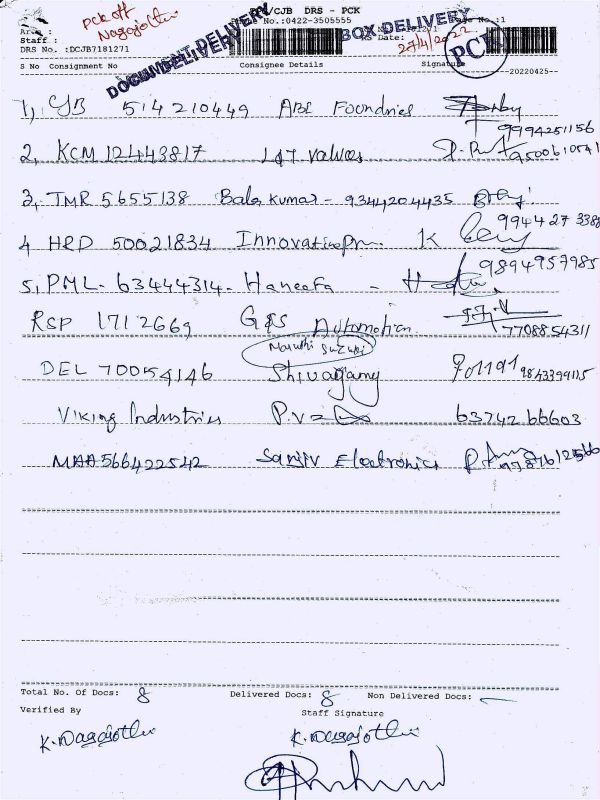 PCK off
Nagajothi
/CJB DRS - PCK
No.:0422-3505555
:1
Area :
Staff :
DRS No. :DCJB7181271
Date:
27/4/2022
DOCUMENT DELIVERY
BOX DELIVERY
PCK
S No Consignment No Consignee Details Signature
20220425
1, CJB 514210449 ABI Foundries
9994251156
2, KCM 12443817 L&T Valves 9500610541
3, TMR 5655138 Bala Kumar - 9344204435
4 HRD 50021834 K
5, PML - 63444314 - Haneefa -
9894957985
RSP 1712669 G&S Automotion
7708854311
Maruthi Suzuki
DEL 70054146 Shivagamy 701191 9843399115
Viking Industries 63742 66603
MAA 566422542 Sanjiv Electronics
Total No. Of Docs: 8 Delivered Docs: 8 Non Delivered Docs: -
Verified By Staff Signature
K. Nagajothi K. Nagajothi